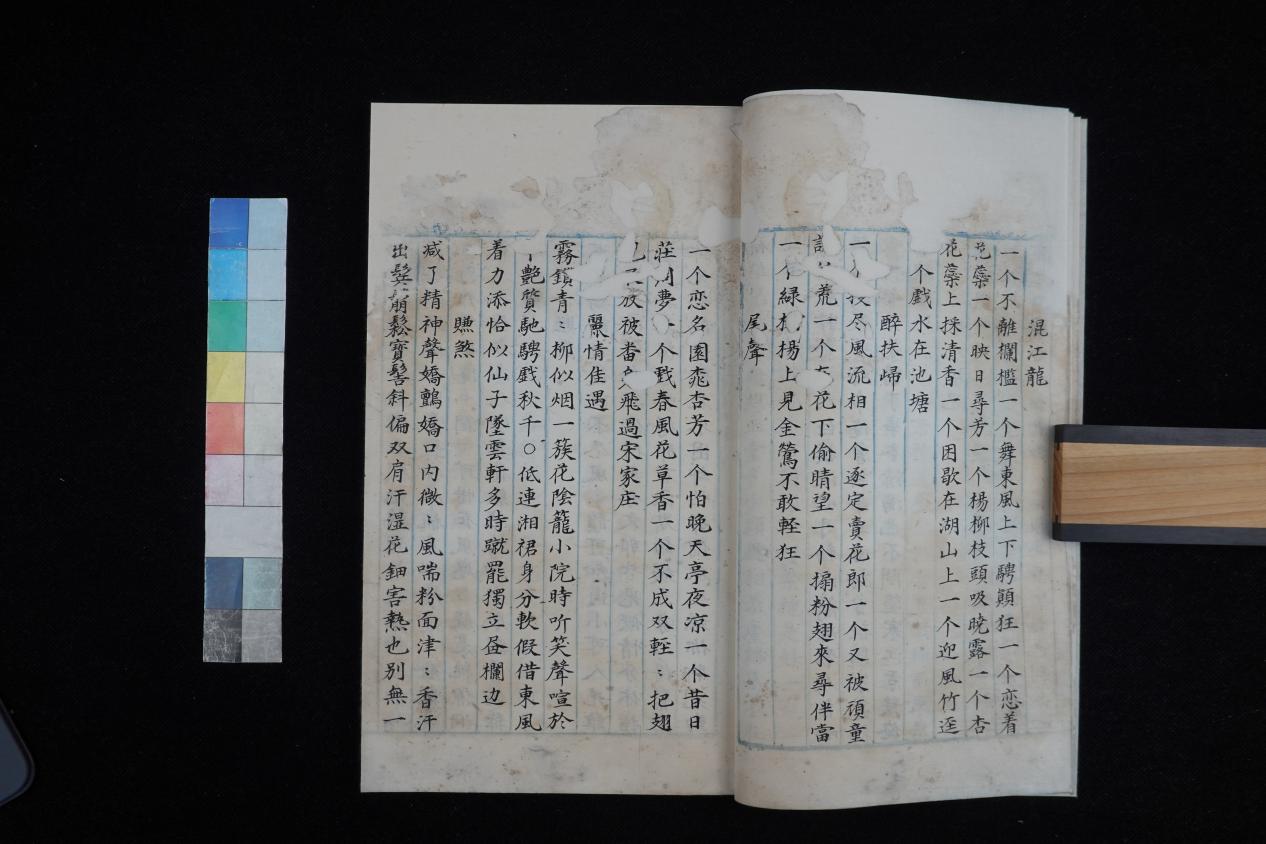 混江龍
一个不離欄檻一个舞東風上下騁顛狂一个恋着
花蘂一个映日尋芳一个楊柳枝頭吸晓露一个杏
花蘂上採清香一个困歇在湖山上一个迎風竹逕
个戲水在池塘
醉扶歸
一 尽風流相一个逐定賣花郎一个又被頑童
荒一个 花下偷晴望一个搧粉翅來尋伴當
一个緑 楊上見金鶯不敢輊狂
尾聲
一个恋名園桃杏芳一个怕晚天亭夜凉一个昔日
莊周夢 个戱春風花草香一个不成双輊〻把翅
放被番 飛過宋家庄
麗情佳遇
霧鎖青〻柳似烟一簇花陰籠小院時听笑聲喧於
艶質馳騁戱秋千○低連湘裙身分軟假借東風
着力添恰似仙子墜雲軒多時蹴罷獨立昼欄边
賺煞
减了精神聲嬌鸇嬌口内微〻風喘粉面津〻香汗
出鬓 鬆寳髻斜偏双肩汗湿花鈿害熱也别無一